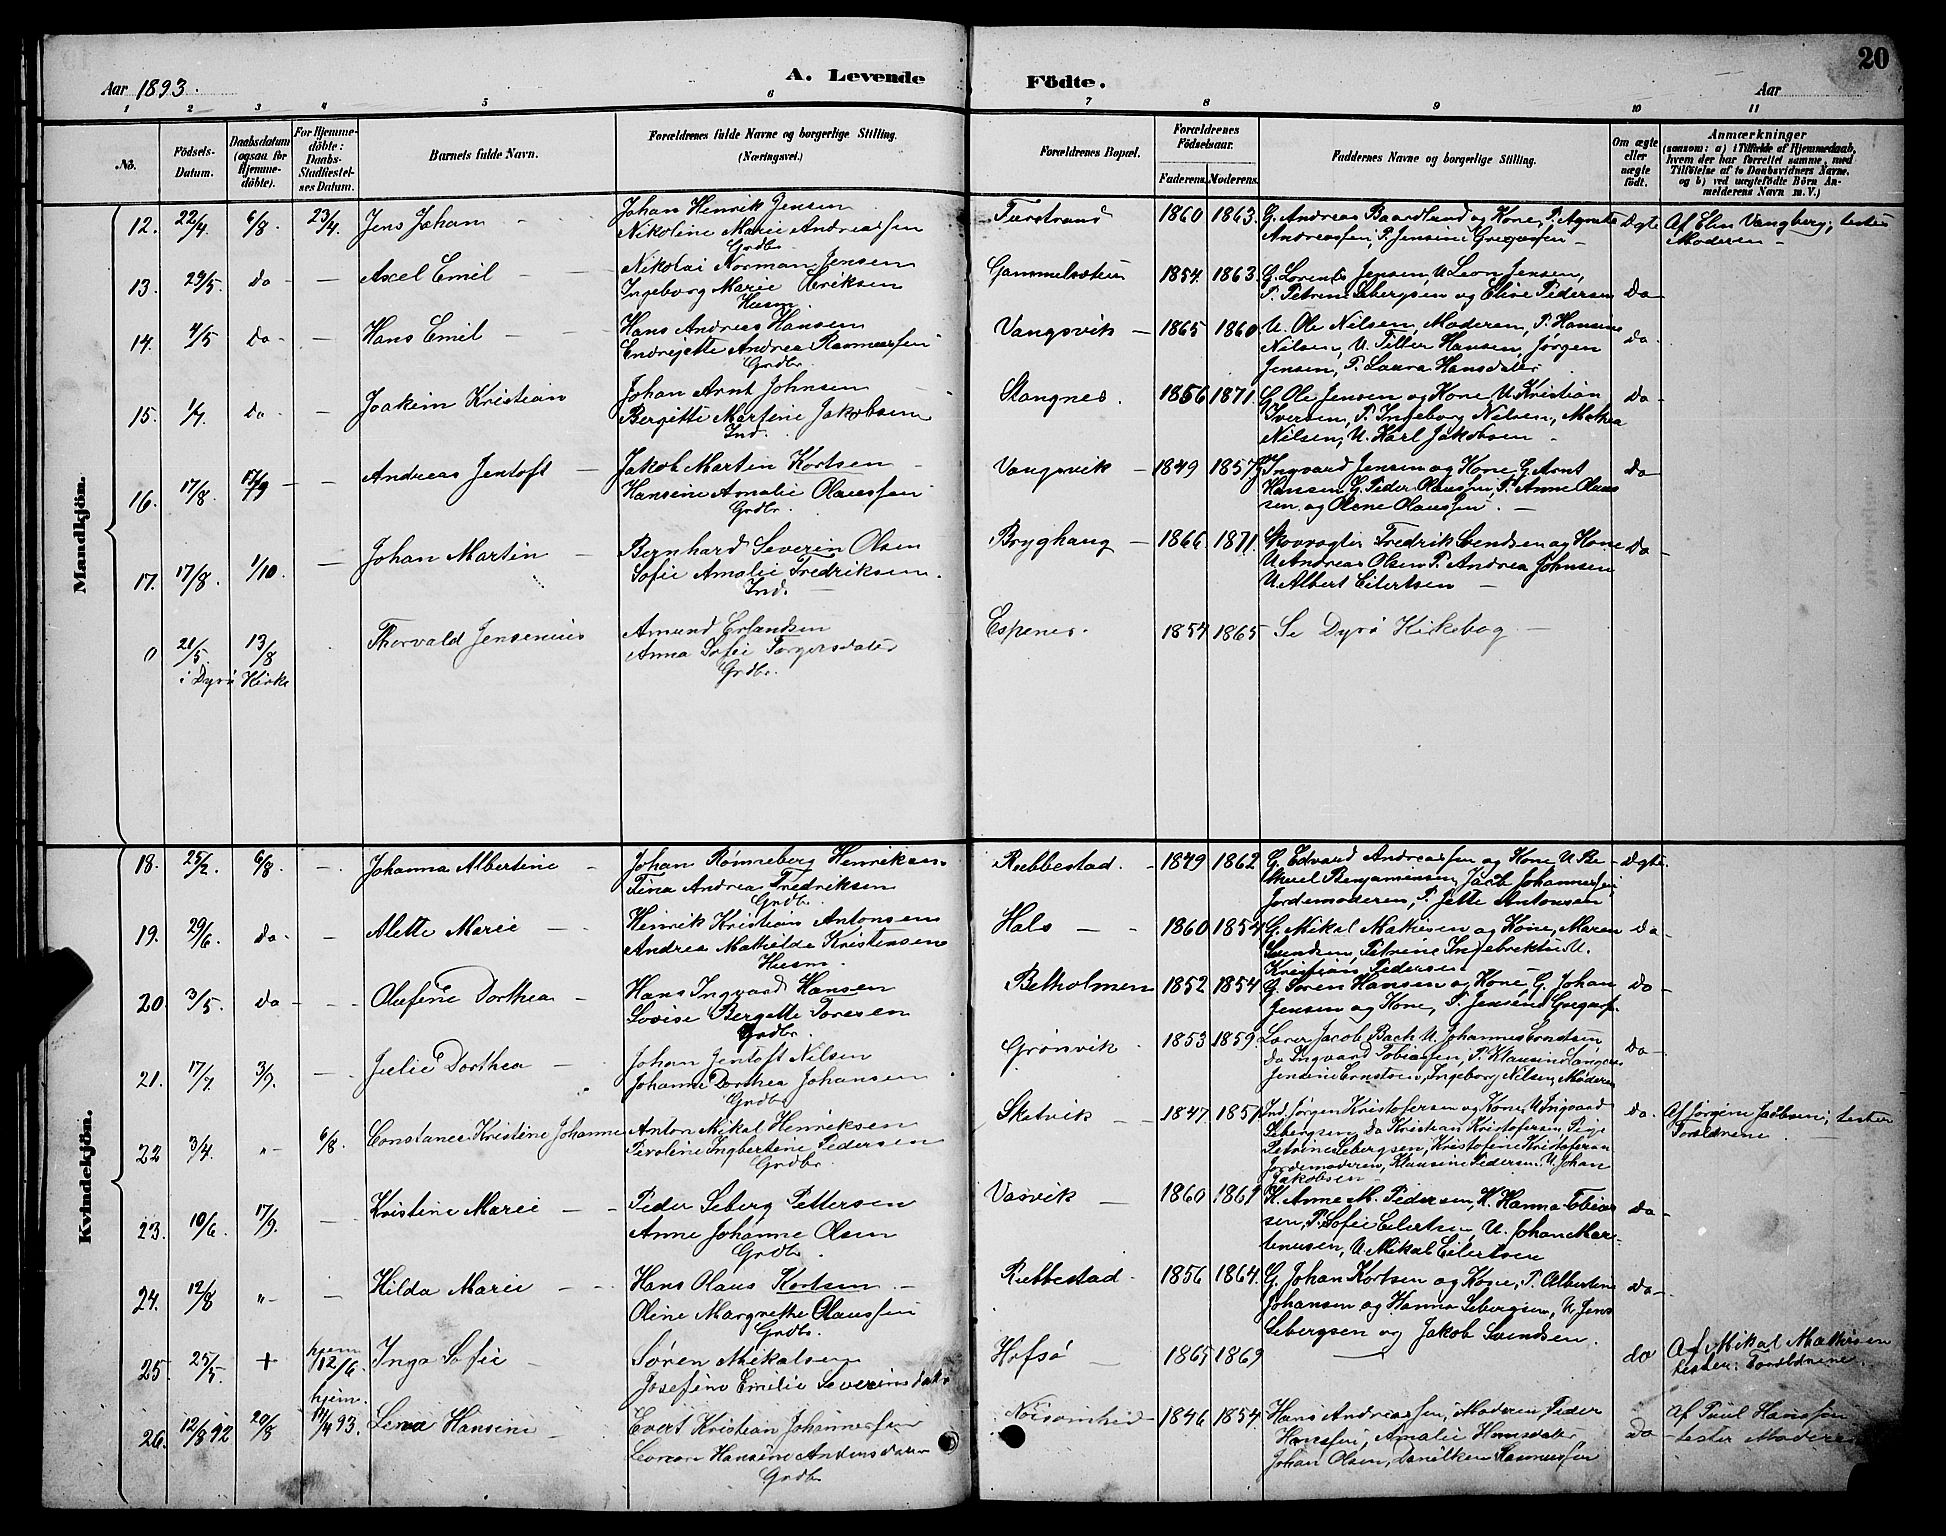 20
Aar 1893.
A. Levende Födte.
Aar
1 2 3 4 5 6 7 8 9 10 11
No.
Födsels-Datum.
Daabsdatum (ogsaa for Hjemmedöbte).
For Hjemmedöbte: Daabs-Stadfæstelses Datum.
Barnets fulde Navn.
Forældrenes fulde Navne og borgerlige Stilling. (Næringsvei.)
Forældrenes Bopæl.
Forældrenes Födselsaar.
Faderens. Moderens.
Faddernes Navne og borgerlige Stilling.
Om ægte eller uægte födt.
Anmærkninger (saasom: a) i Tilfælde af Hjemmedaab, hvem der har forrettet samme, med Tilföielse af to Daabsvidners Navne, og b) ved uægtefödte Börn Anmelderens Navn m. V.)
Mandkjön.
12. 22/4. 6/8 23/4. Jens Johan
Johan Henrik Jensen
Nikoline Marie Andreassen
Grdbr.
1860 1863. G. Andreas Baardlund og Kone, P. Agnete
Andreassen, P. Jensine Gregersen
Ægte
Af Elen Vangberg; tester
Moderen
13. 29/5. do Axel Emil
Nikolai Norman Jensen
Ingeborg Marie Eriksen
Husm.
1854. 1863. G. Lorents Jensen, U. Leon Jensen,
P. Petrine Sebergsen og Elise Pedersen
do
14. 4/5 do Hans Emil
Hans Andreas Hansen
Endrejette Andrea Rasmussen
Grdbr.
Vangsvik 1865 1860 U. Ole Nilsen, Moderen, P. Hansine
Nilsen, U. Petter Hansen, Jørgen
Jensen, P. Laura Hansdater
do
15. 1/7. do Joakim Kristian
Johan Arnt Johnsen
Bergitte Martine Jakobsen
Ind.
Stangnes. 1856 1871. G. Ole Jensen og Kone U. Kristian
Iversen, P. Ingeborg Nilsen, Mathea
Nilsen, U. Karl Jakobsen
do
16. 17/8. 17/9 Andreas Jentoft
Jakob Martin Kortsen
Hansine Amalie Olaussen
Grdbr.
Vangsvik 1849 1857 G. Ingvard Jensen og Kone, G. Arnt
Hansen G. Peder Olaussen, P. Anne Olaus
sen og Olene Olaussen
do
17. 17/8. 1/10. Johan Martin
Bernhard Severin Olsen
Sofie Amalie Fredriksen.
Ind.
Bryghaug 1866 1871. Skovvogter Fredrik Svendsen og Kone
U. Andreas Olsen P. Andrea Johnsen
U. Albert Eilertsen
do
0 21/5. 13/8 Thorvald Jensenius
i Dyrö Kirke
Amund Erlandsen
Anna Sofie Torgersdater
Grdbr.
Espenes. 1854 1865 Se Dyrö Kirkebog
Kvindekjön.
18. 25/2. 6/8. Johanna Albertine
Johan Rønneberg Henriksen.
Tina Andrea Fredriksen
Grdbr.
Rubbestad. 1849 1862 G. Edvard Andreassen og Kone U. Be
Benjaminsen, Jacob Johannessen
Jordemoderen, P. Jette Antonsen
Ægte
19. 29/6. do Alette Marie
Henrik Kristian Antonsen
Andrea Mathilde Kristensen
Husm.
Hals 1860 1854 G. Mikal Mathisen og Kone, Maren
Svendsen, Petrine Ingebriktsen U.
Kristian Pedersen
do
20. 3/5. do Olefine Dorthea
Hans Ingvard Hansen
Lovise Bergette Toresen
Grdbr.
Betholmen 1852 1854 G. Søren Hansen og Kone, G. Johan
Jensen og Kone, P. Jensine Gregers.
do
21. 17/7 3/9. Julie Dorthea
Johan Jentoft Nilsen
Johanne Dorthea Johansen
Grdbr.
Grønvik 1853 1859. Lærer Jacob Bach U. Johannes Berntsen
do Ingvard Tobiassen, P. Klausine
Jensine Ernstsen, Ingeborg Nilsen, Moderen
do
22 3/4. 6/8. Constance Kristine Johanne
Anton Mikal Henriksen
Pevoline Ingbertine Pedersen
Grdbr.
Skatvik 1847. 1851. Ind. Jørgen Kristofersen og Kone, U. Ingvard
Sebergsen, do Kristian Kristofersen, Pige
Petrine Sebergsen, Kristofine Kristofersen
Jordemoderen, Klausine Pedersen. U. Johan
Jakobsen
do.
Af Jørgine Jacobsen; tester
Foreldrene
23. 10/6. 17/9. Kristine Marie
Peder Seberg Pettersen
Anne Johanne Olsen
Grdbr.
1860 1861 K. Anne M. Pedersen, K. Hanna Tobias
sen, P. Sofie Eilertsen, U. Johan Mar-
tinusen, U. Mikal Eilertsen
do
24. 12/8 Hilda Marie
Hans Olaus Kortsen
Oline Margrethe Olaussen
Grdbr.
Rubbestad. 1856 1864. G. Johan Kortsen og Kone, P. Albertine
Johansen og Hanna Sebergsen, U. Jens
Sebergsen og Jakob Svendsen.
do
25. 25/5. + hjem 12/6. Inga Sofie
Søren Mikalsen
Josefine Emilie Severinsdatr.
Hofsö 1865 1869 do
Af Mikal Mathisen
tester: Foreldrene.
26. 12/8 92 20/8 hjem. 14/4 93. Lena Hansine
Evert Kristian Johannessen
Leonore Hansine Andersdater
Grdbr
1846 1854. Hans Andreassen, Moderen, Peder
Hanssen, Amalie Hansdater
Johan Olsen, Rasmussen
do
Af Paul Hanssen
tester Moderen